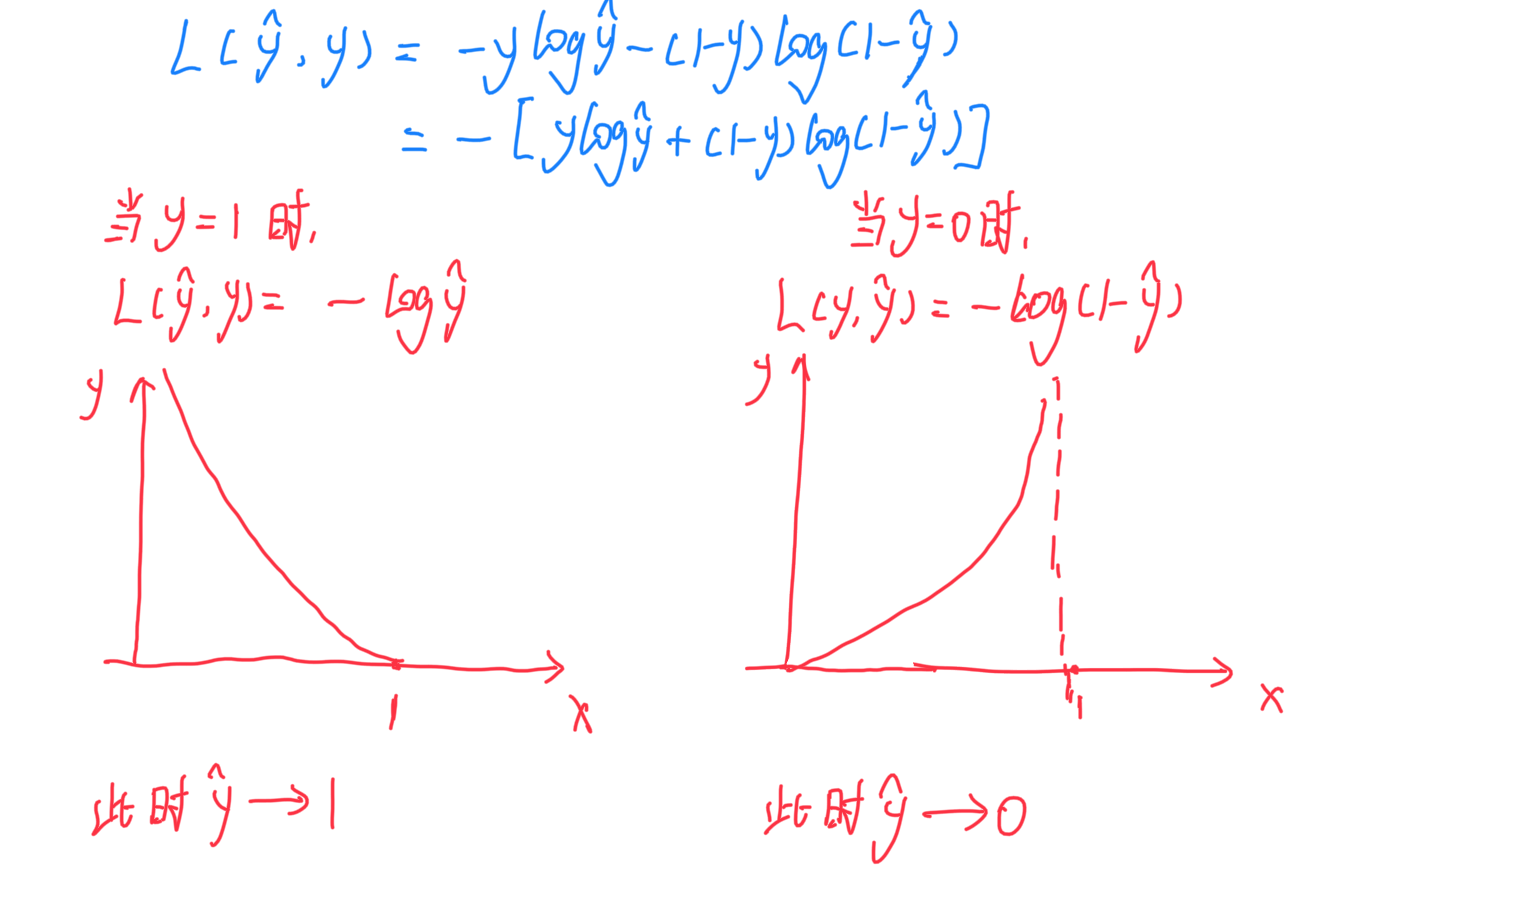 L(ŷ, y) = -ylogŷ-(1-y)log(1-ŷ)
= -[ylogŷ+(1-y)log(1-ŷ)]
当y=1时,
L(ŷ,y)= -logŷ
y
1
x
此时ŷ→1
当y=0时,
L(y,ŷ)=-log(1-ŷ)
y
1
x
此时ŷ→0